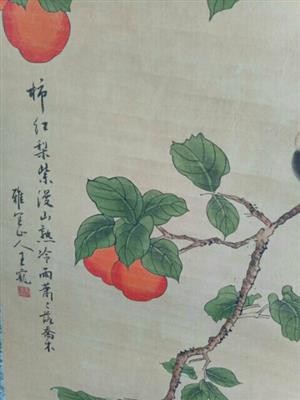 柿红梨紫漫山熟冷雨萧々落乔木
雅宜山人王宠